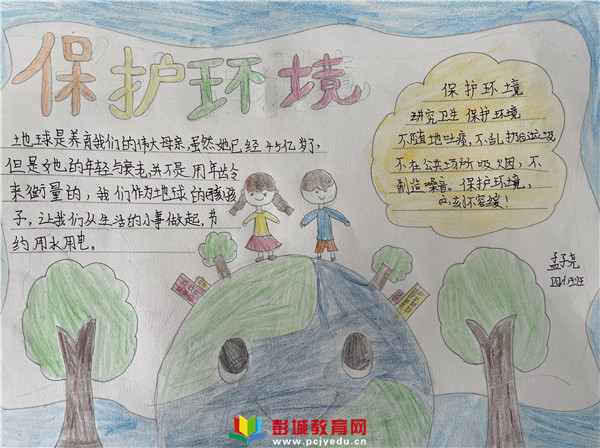 保护环境
地球是养育我们的伟大母亲,虽然她已经45亿岁了,
但是她的年轻与衰老,并不是用年龄
来衡量的,我们作为地球的孩
子,让我们从生活的小事做起,节
约用水用电。
保护环境
研究卫生 保护环境
不随地吐痰,不乱扔垃圾
不在公共场所吸烟,不
制造噪音。保护环境,
刻不容缓!
孟子尧
四(1)班
彭城教育网
www.pcjyedu.cn